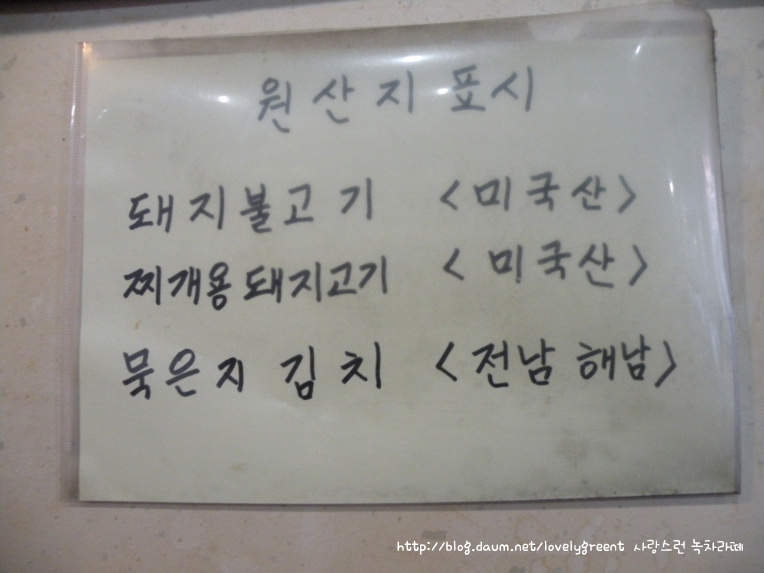 원산지 표시
돼지불고기 <미국산>
찌개용돼지고기 <미국산>
묵은지 김치 <전남 해남>
http://blog.daum.net/lovelygreent 사랑스런 녹차라떼